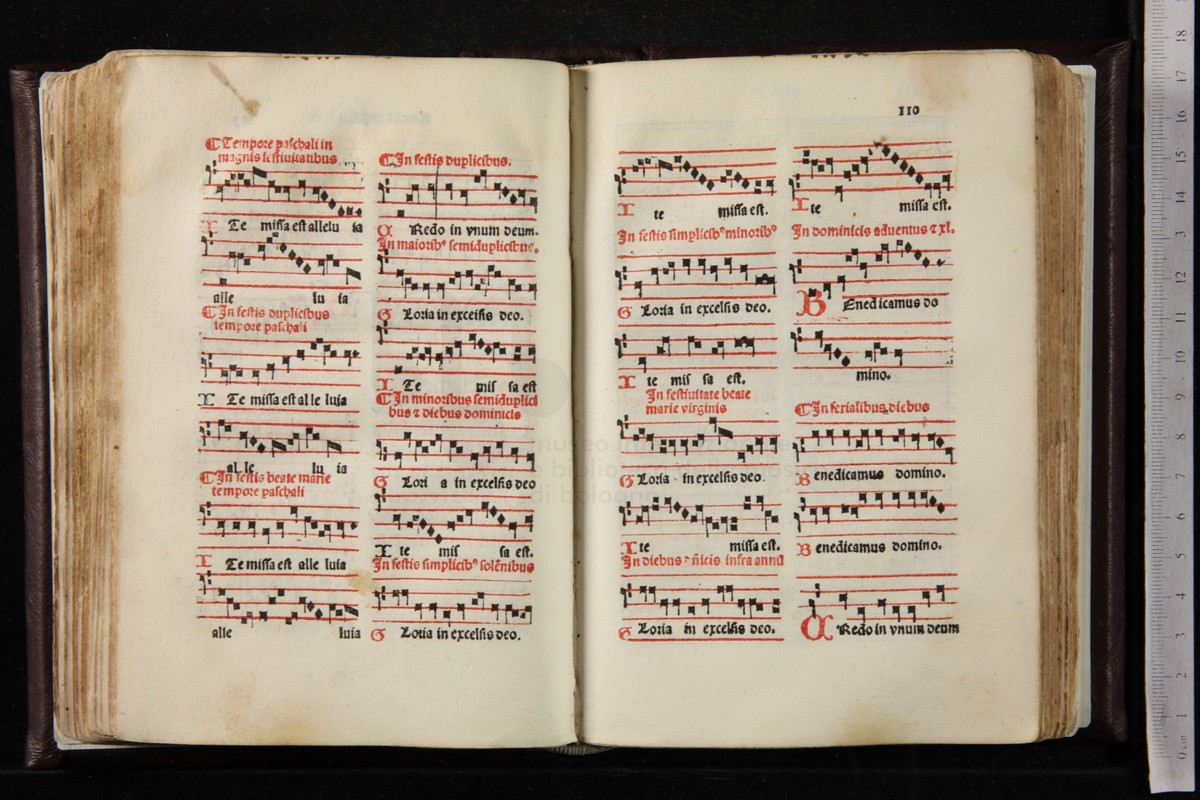 ¶ Tempore paschali in
magnis festiuitatibus
I Te missa est allelu ia
alle lu ia
¶ In festis duplicibus
tempore paschali
I Te missa est al le luia
al le lu ia
¶ In festis beate marie
tempore paschali
I Te missa est alle luia
alle luia
¶ In festis duplicibus.
C Redo in vnum deum.
In maioribꝰ semiduplicibus.
G Loria in excelsis deo.
I Te mis sa est
¶ In minoribus semiduplici
bus ⁊ diebus dominicis
G Lori a in excelsis deo
I te mis sa est.
In festis simplicibꝰ solēnibus
G Loria in excelsis deo.
110
I te missa est.
In festis simplicibꝰ minoribꝰ
G Loria in excelsis deo.
I te mis sa est.
In festiuitate beate
marie virginis
G Loria in excelsis deo.
I te missa est.
In diebus infra annū
G Loria in excelsis deo.
I te missa est.
In dominicis aduentus ⁊ xl.
B Enedicamus do
mino.
¶ In ferialibus diebus
B enedicamus domino.
B enedicamus domino.
C Redo in vnum deum
museo
biblio
di bologna
0 cm 1 2 3 4 5 6 7 8 9 10 11 12 13 14 15 16 17 18